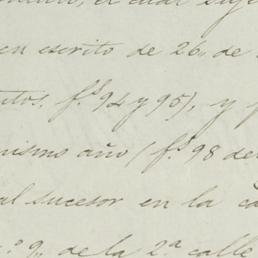 el cual
en escrito de 26, de
fs. 94 y 95), y
mismo año (fs. 98 de
al sucesor en la
9, de la 2.ª calle